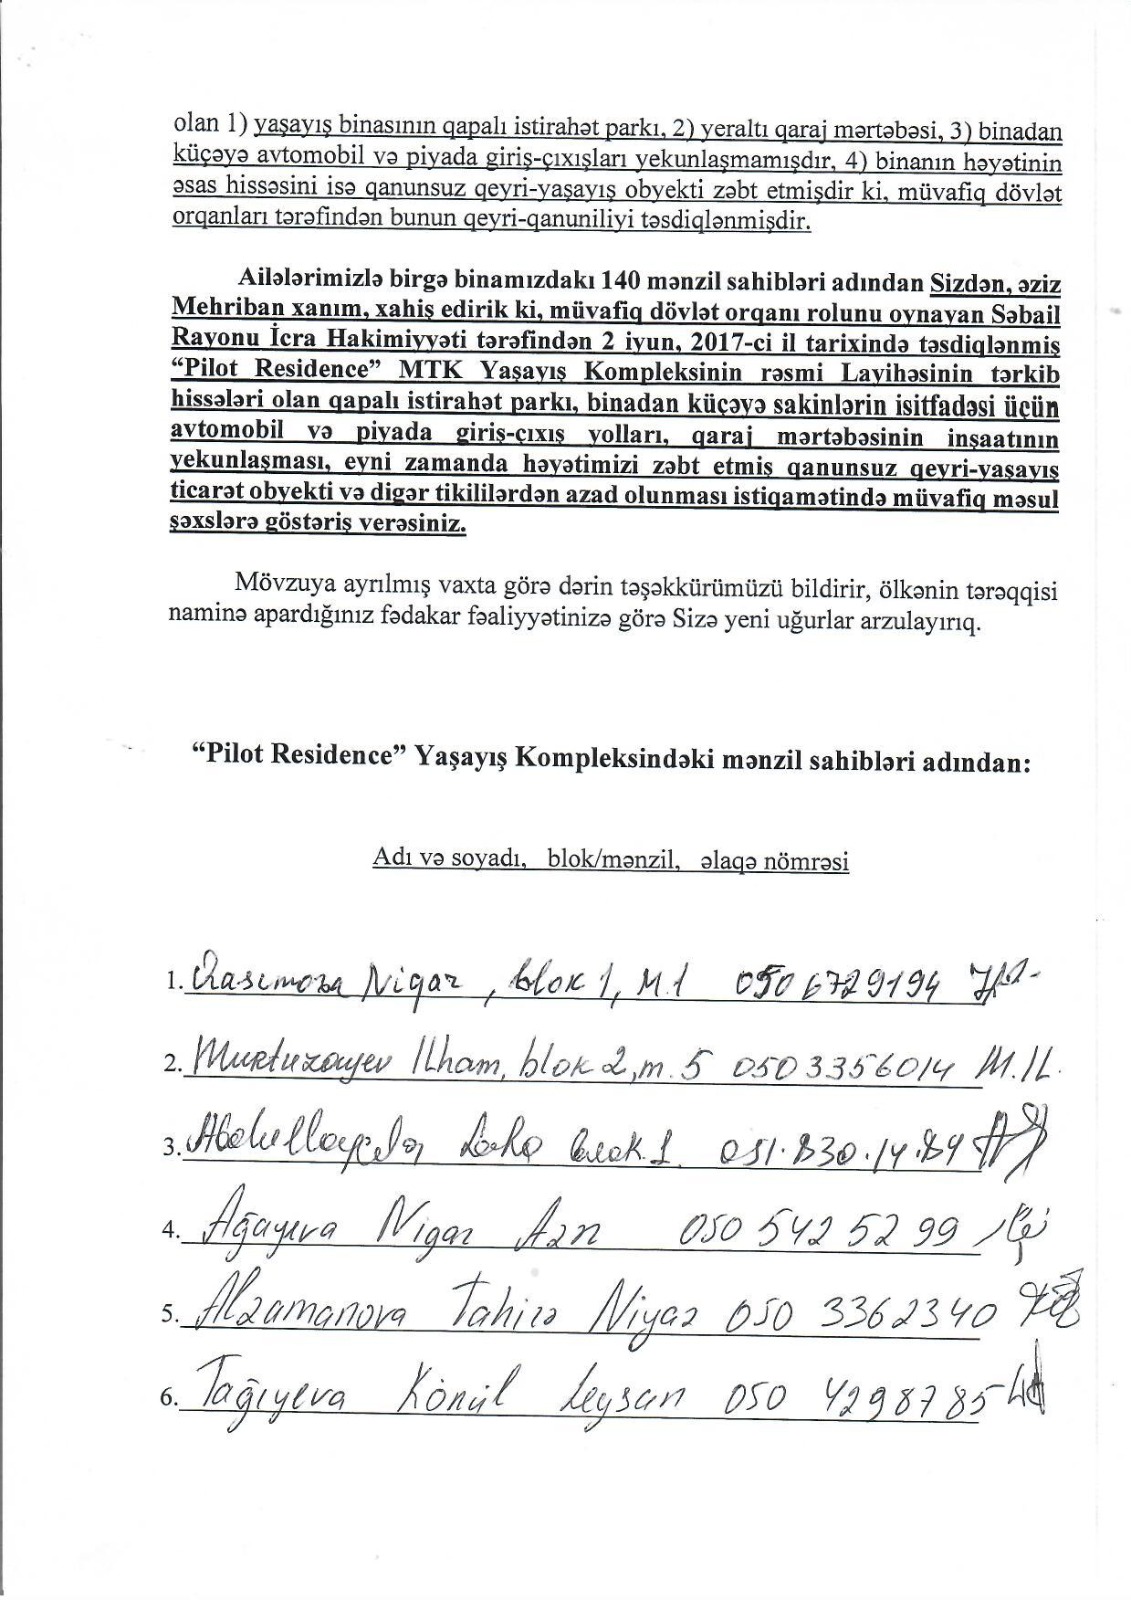 olan 1) yaşayış binasının qapalı istirahət parkı, 2) yeraltı qaraj mərtəbəsi, 3) binadan
küçəyə avtomobil və piyada giriş-çıxışları yekunlaşmamışdır, 4) binanın həyətinin
əsas hissəsini isə qanunsuz qeyri-yaşayış obyekti zəbt etmişdir ki, müvafiq dövlət
orqanları tərəfindən bunun qeyri-qanuniliyi təsdiqlənmişdir.
Ailələrimizlə birgə binamızdakı 140 mənzil sahibləri adından Sizdən, əziz
Mehriban xanım, xahiş edirik ki, müvafiq dövlət orqanı rolunu oynayan Səbail
Rayonu İcra Hakimiyyəti tərəfindən 2 iyun, 2017-ci il tarixində təsdiqlənmiş
“Pilot Residence” MTK Yaşayış Kompleksinin rəsmi Layihəsinin tərkib
hissələri olan qapalı istirahət parkı, binadan küçəyə sakinlərin isitfadəsi üçün
avtomobil və piyada giriş-çıxış yolları, qaraj mərtəbəsinin inşaatının
yekunlaşması, eyni zamanda həyətimizi zəbt etmiş qanunsuz qeyri-yaşayış
ticarət obyekti və digər tikililərdən azad olunması istiqamətində müvafiq məsul
şəxslərə göstəriş verəsiniz.
Mövzuya ayrılmış vaxta görə dərin təşəkkürümüzü bildirir, ölkənin tərəqqisi
naminə apardığınız fədakar fəaliyyətinizə görə Sizə yeni uğurlar arzulayırıq.
“Pilot Residence” Yaşayış Kompleksindəki mənzil sahibləri adından:
Adı və soyadı, blok/mənzil, əlaqə nömrəsi
1. Qasımova Nigar, blok 1, M.1 050 6729194
2. Murtuzayev Ilham, blok 2, m. 5 050 3356014 M.IL.
3. blok.1. 051.830.14.84
4. Ağayeva Nigar Azn 050 542 52 99
5. Alzamanova Tahirə Niyaz 050 3362340
6. Tağıyeva Könül Leysan 050 4298785